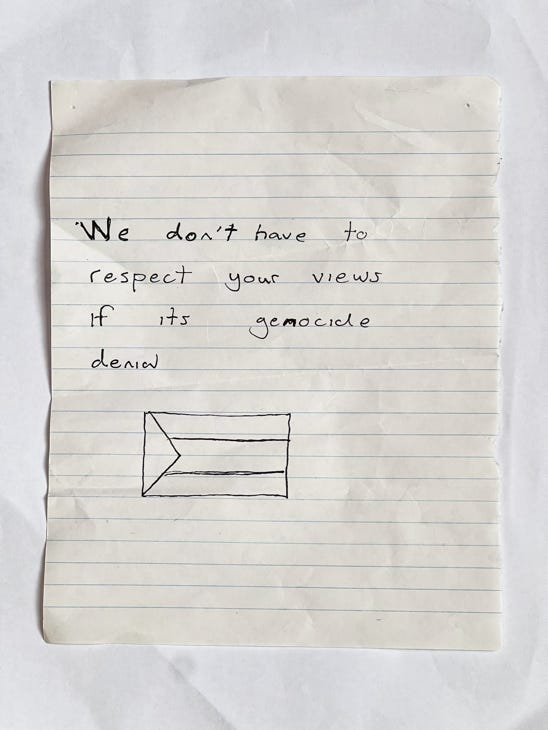 We don't have to
respect your views
If its genocide
denial